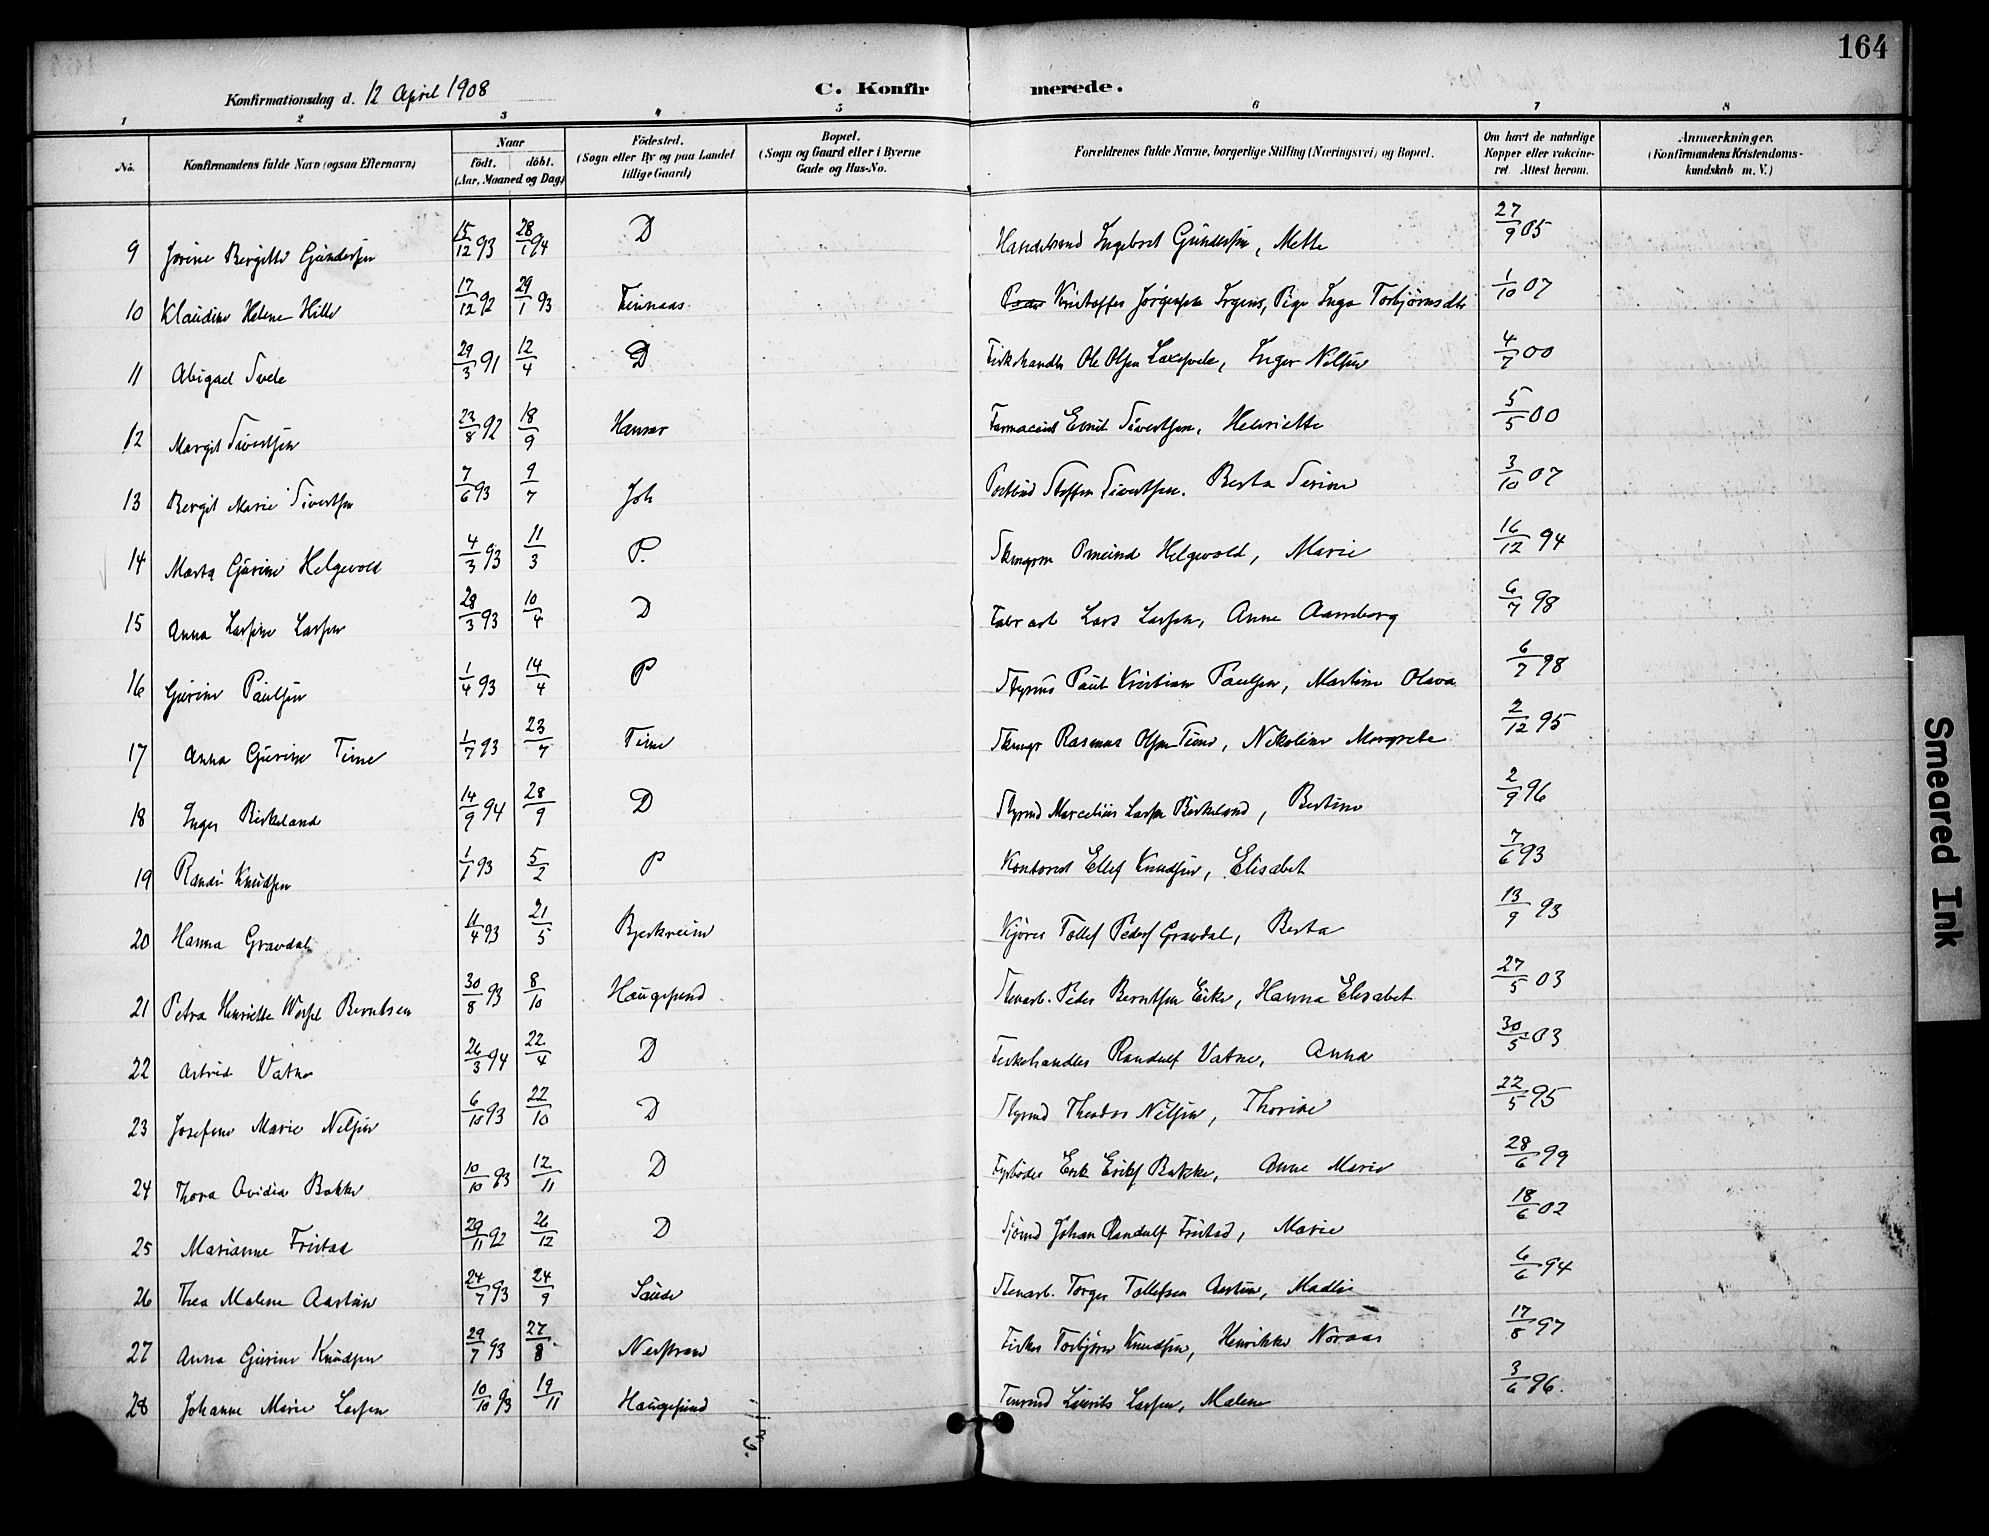 164
Konfirmationsdag d. 12 April 1908
C. Konfirmerede.
1 2 3 4 5 6 7 8
No.
Konfirmandens fulde Navn (ogsaa Efternavn)
Naar födt. döbt. (Aar, Maaned og Dag)
Födested. (Sogn eller By og paa Landet tillige Gaard)
Bopæl. (Sogn og Gaard eller i Byerne Gade og Hus-No.
Forældrenes fulde Navne, borgerlige Stilling (Næringsvei) og Bopæl.
Om havt de naturlige Kopper eller vakcineret. Attest herom.
Anmærkninger. (Konfirmandens Kristendomskundskab m. V.)
9 Jorine Bergitte Gundersen 15/12 93 28/1 94 D Ingebret Gundersen, Mette 27/9 05
10 Klaudine Helene Hille 17/12 92 29/1 93 Finnaas Kristoffer Jørgensen Irgens, Pige Inga Torbjørnsdtr 1/10 07
11 Abigael Svele 29/3 91 12/4 D Fiskehandler Ole Olsen, Inger Nilsen 4/7 00
12 Margit Sivertsen 23/8 92 18/9 Hamar Farmaceut Emil Sivertsen, Henriette 5/5 00
13 Bergit Marie Sivertsen 7/6 93 9/7 Joh Postbud Steffen Sivertsen. Berta Serine 3/10 07
14 Marta Gurine Helgevold 4/3 93 11/3 P. Omund Helgevold, Marie 16/12 94
15 Anna Larsine Larsen 28/3 93 10/4 D Fabr arb Lars Larsen, Anne Aarreberg 6/7 98
16 Gurine Paulsen 1/4 93 14/4 P Styrmd Paul Kristian Paulsen, Martine Olava 6/7 98
17 Anna Gurine Time 1/7 93 23/7 Time Rasmus Olsen Time, Nikoline Margrete 2/12 95
18 Inger Birkeland 14/9 94 28/9 D Styrmd Marcelius Larsen Birkeland, Bertine 2/9 96
19 Randi Knudsen 1/1 93 5/2 P Kontorist Ellef Knudsen, Elisabet 7/6 93
20 Hanna Gravdal 11/4 93 21/5 Bjerkreim Kjører Tollef Peders Gravdal, Berta 13/9 93
21 Petra Henriette Berntsen 30/8 93 8/10 Haugesund Stenarb. Peder Berntsen Eike, Hanna Elisabet 27/5 03
22 Astrid Vatne 26/3 94 22/4 D Fiskehandler Randulf Vatne, Anna 30/5 03
23 Josefine Marie Nilsen 6/10 93 22/10 D Styrmd Theodor Nilsen, Thorine 22/5 95
24 Thora Ovidia Bakke 10/10 93 12/11 D Fyrbøder Erik Eriks Bakke, Anne Marie 28/6 99
25 Marianne Fristad 29/11 92 26/12 D Sjømd Johan Randulf Fristad, Marie 18/6 02
26 Thea Malene Aastein 24/7 93 24/9 Saude Stenarb. Torger Tollefsen Aastein, Madli 6/6 94
27 Anna Gurine Knudsen 29/7 93 27/8 Nerstrand Fisker Torbjørn Knudsen, Henrikke Noraas 17/8 97
28 Johanne Marie Larsen 10/10 93 19/11 Haugesund Laurits Larsen, Malene 3/6 96.
Smeared Ink